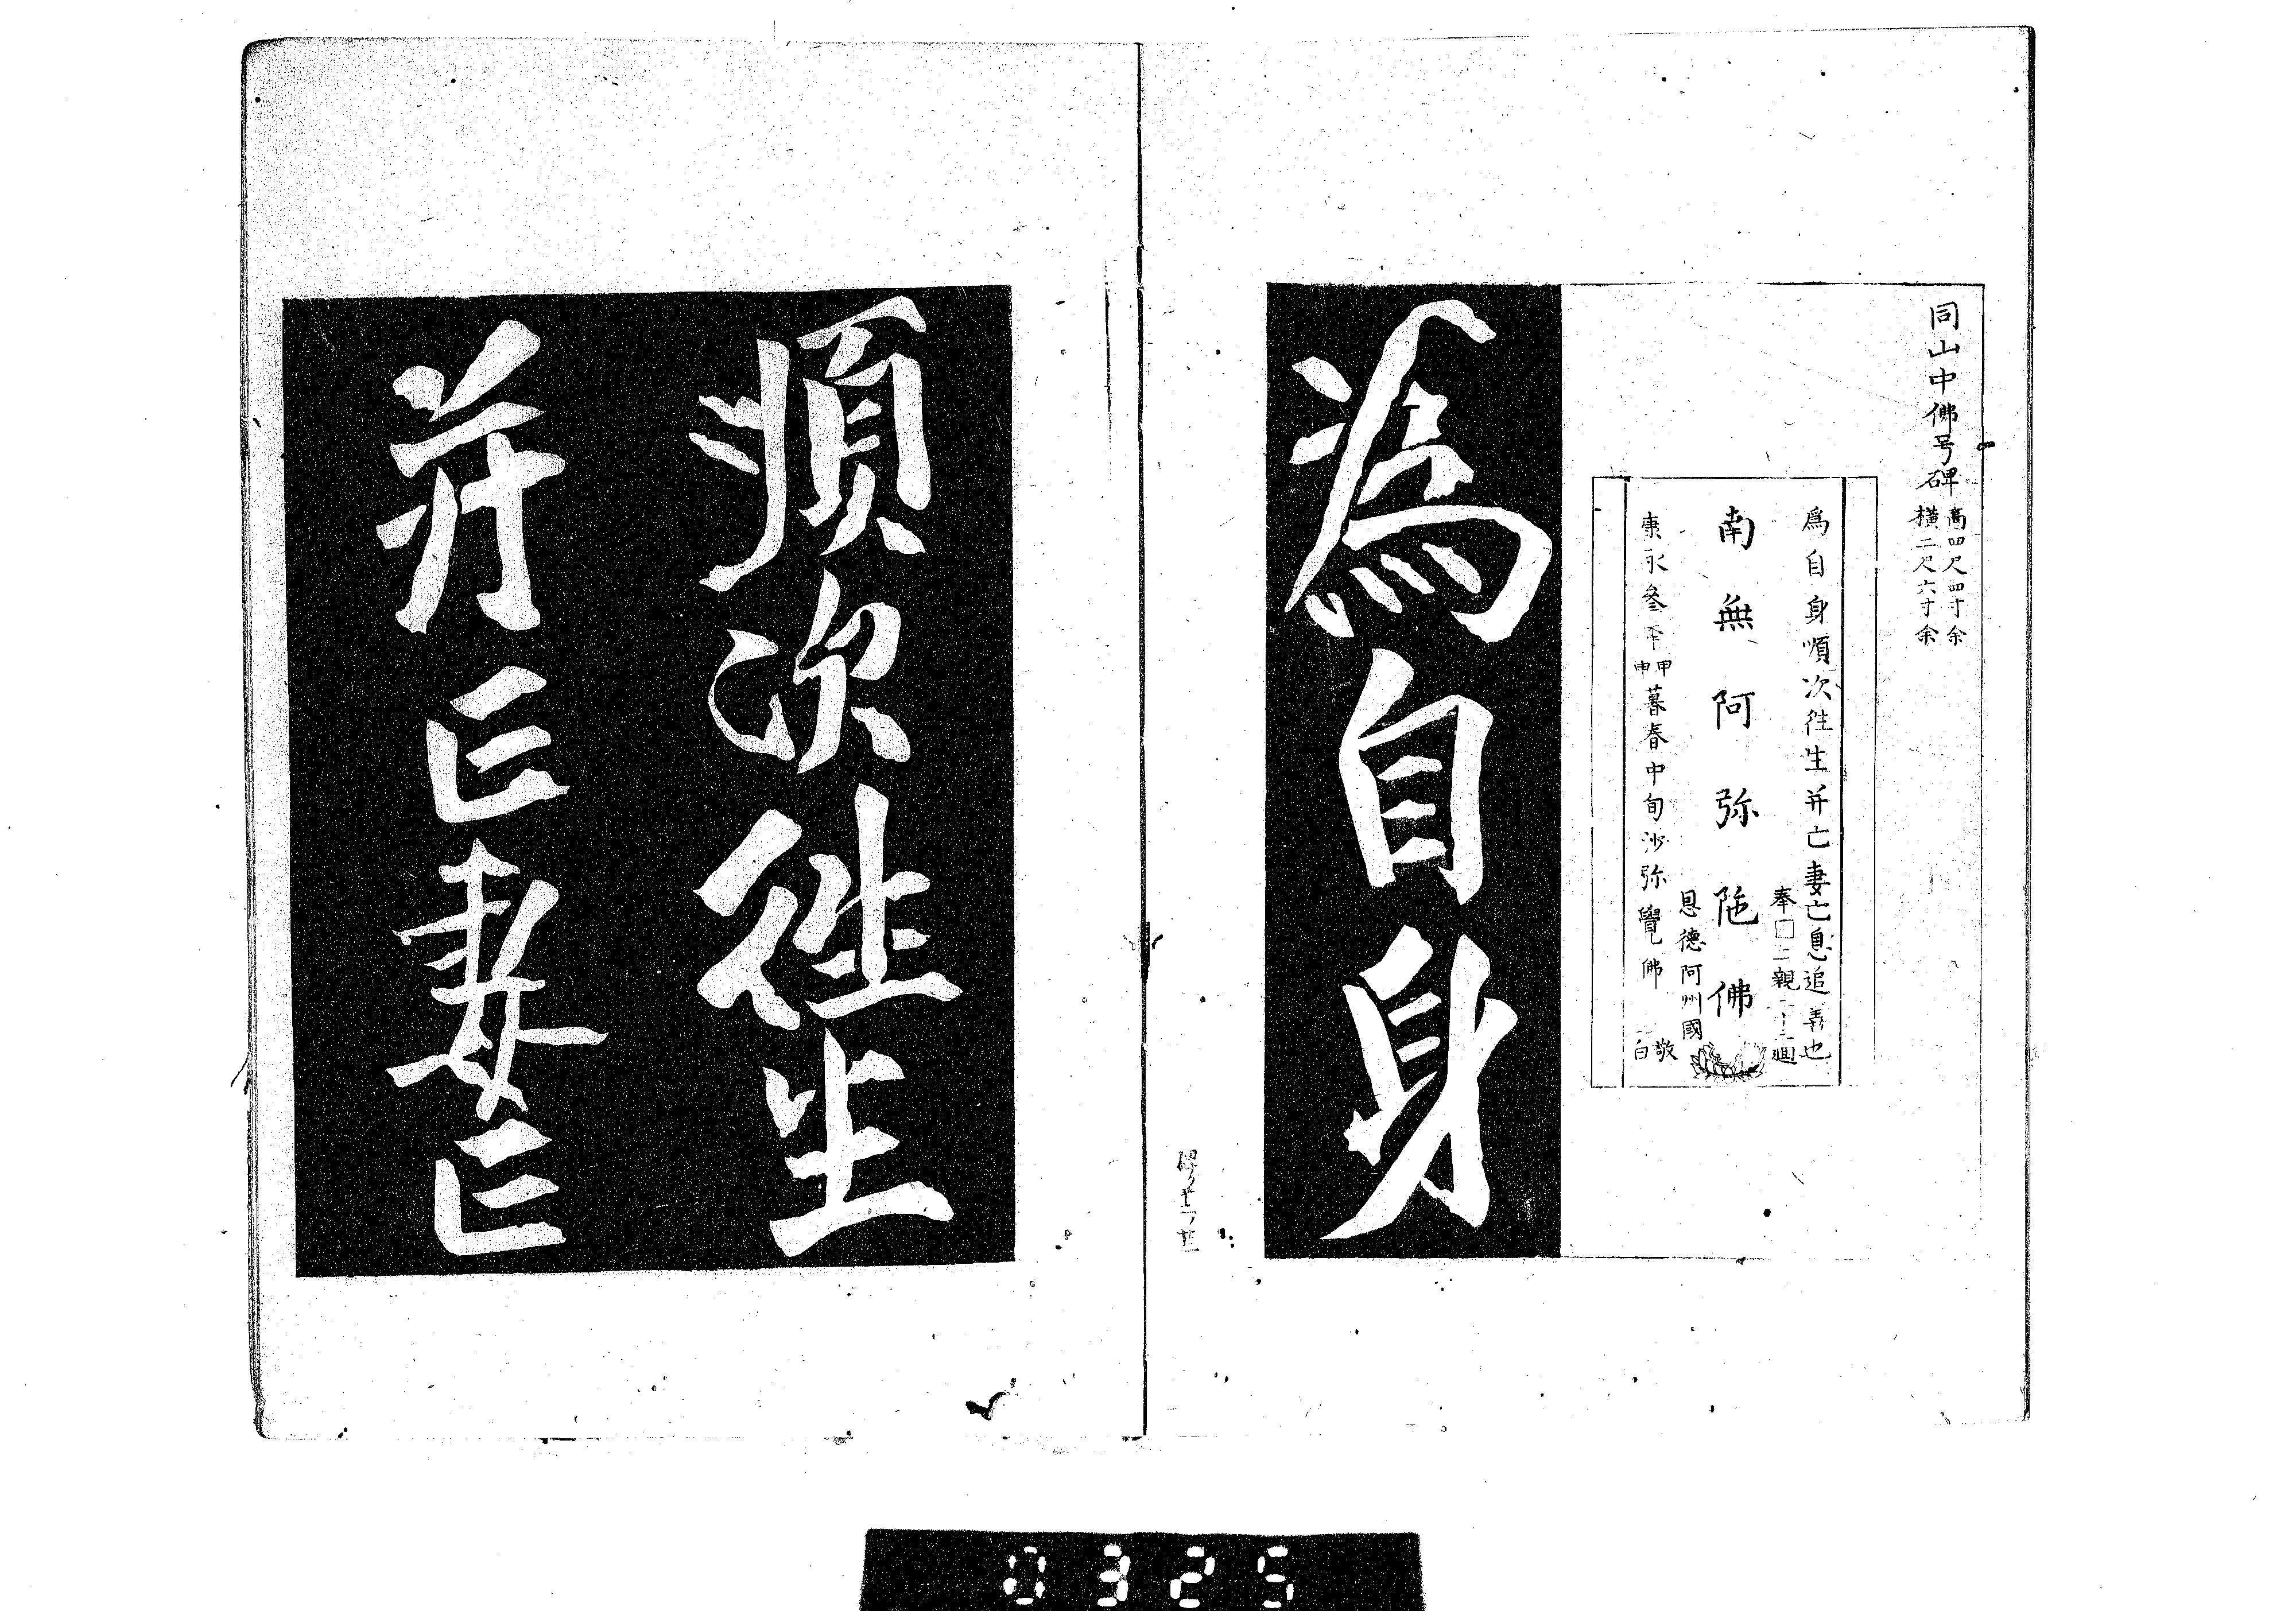 同山中佛号碑
高四尺四寸余
横二尺六寸余
爲自身順次往生并亡妻亡息追善也
奉□二親三十三廻
南無阿弥陁佛
恩德阿州國
康永叄年甲申暮春中旬沙弥覺佛
敬白
為自身
順次往生
并亡妻亡
0325